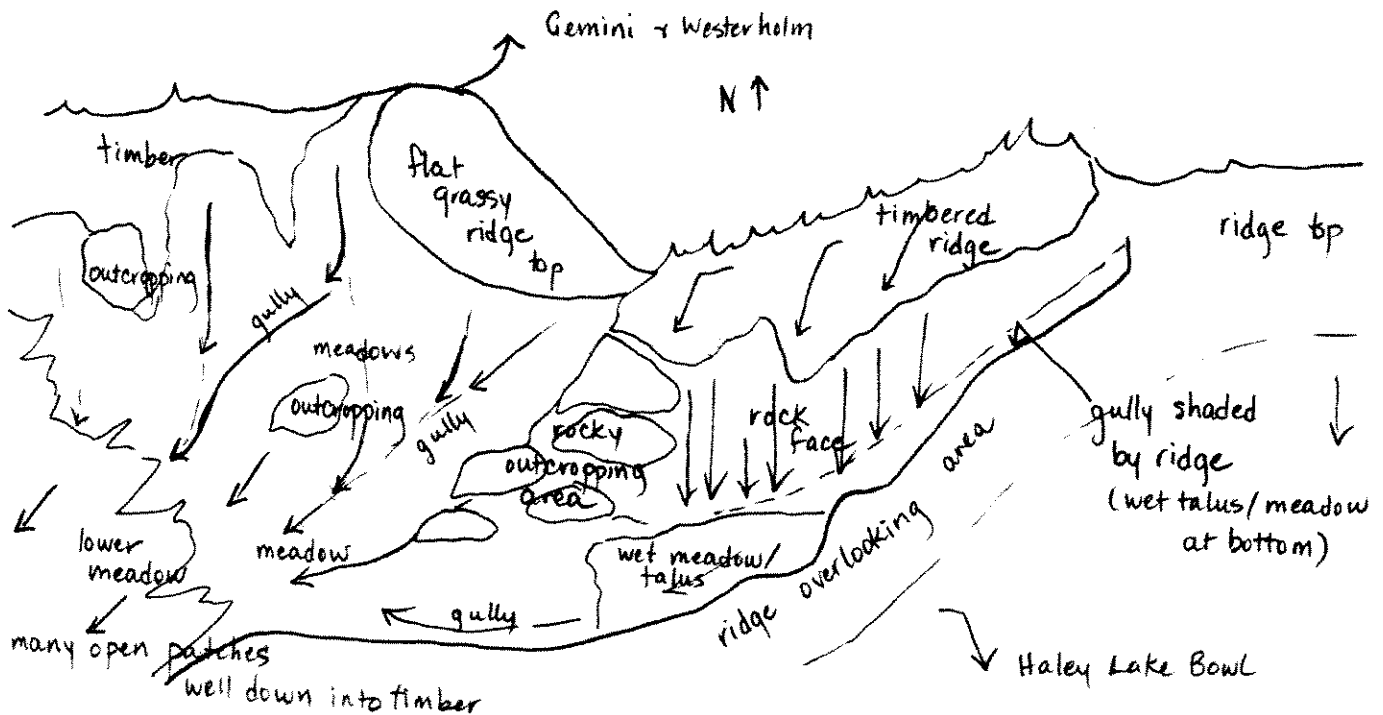 Gemini & Westerholm
N
timber
flat
grassy
ridge
top
timbered
ridge
ridge top
outcropping
gully
meadows
outcropping
gully
rocky
outcropping
area
rock
face
gully shaded
by ridge
(wet talus/meadow
at bottom)
lower
meadow
meadow
wet meadow/
talus
ridge overlooking area
gully
many open patches
well down into timber
Haley Lake Bowl